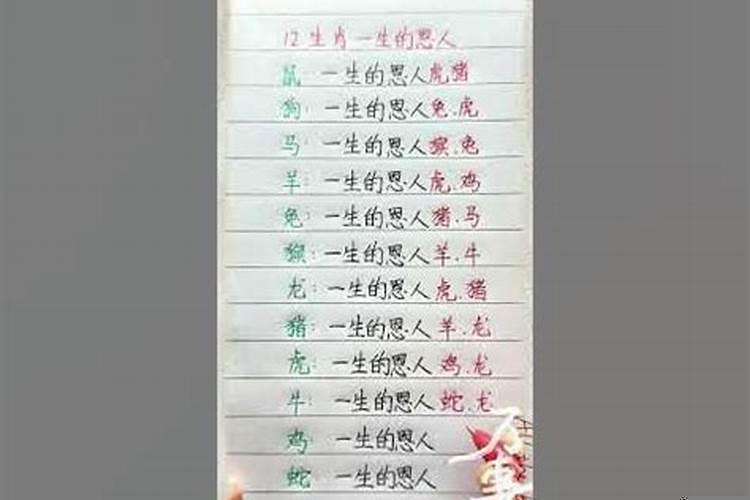 12生肖一生的恩人
鼠 一生的恩人虎猪
狗: 一生的恩人兔.虎
马: 一生的恩人猴.兔
羊: 一生的恩人虎.鸡
兔: 一生的恩人猪.马
猴: 一生的恩人羊.牛
龙: 一生的恩人虎.猪
猪: 一生的恩人羊.龙
虎: 一生的恩人鸡.龙
牛: 一生的恩人蛇.龙
鸡: 一生的恩人
蛇 一生的恩人